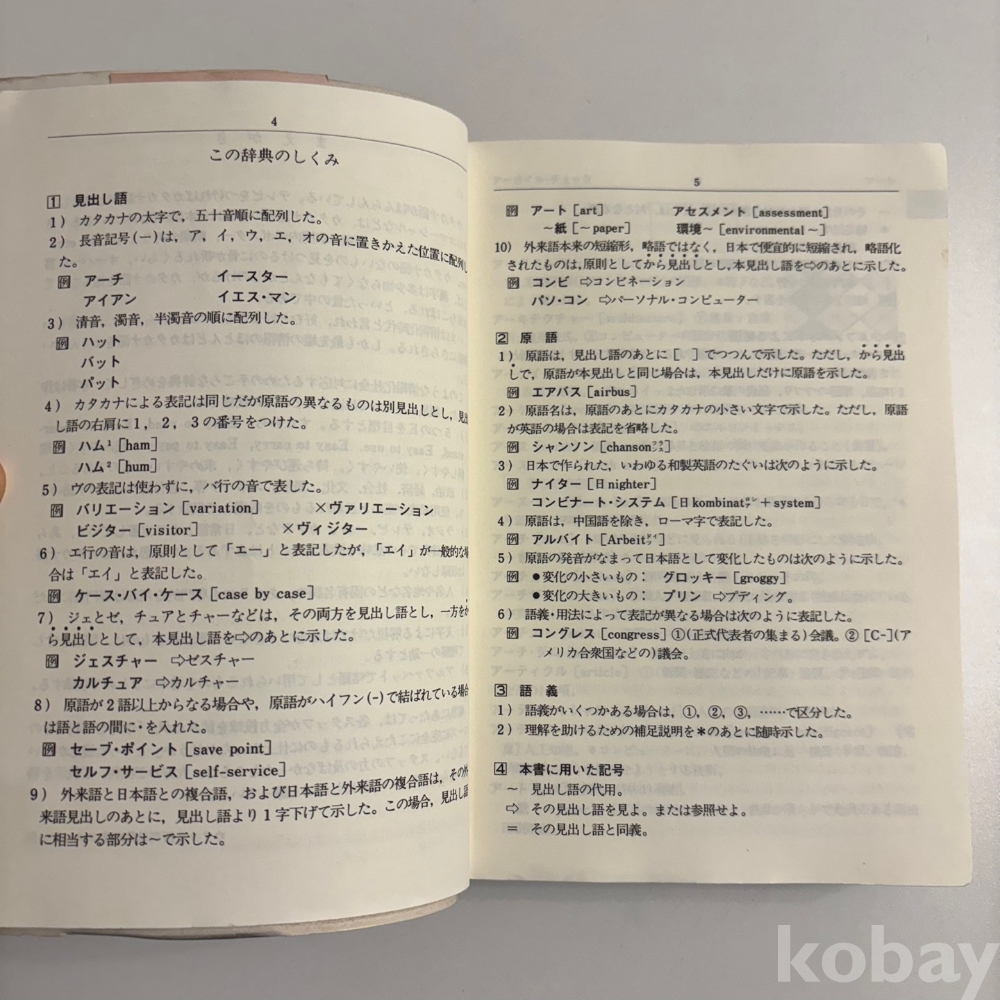 4
この辞典のしくみ
1 見出し語
1) カタカナの太字で，五十音順に配列した。
2) 長音記号(ー)は，ア，イ，ウ，エ，オの音に置きかえた位置に配列し
た。
例 アーチ イースター
アイアン イエス・マン
3) 清音，濁音，半濁音の順に配列した。
例 ハット
バット
パット
4) カタカナによる表記は同じだが原語の異なるものは別見出しとし，見出
し語の右肩に1，2，3の番号をつけた。
例 ハム¹［ham］
ハム²［hum］
5) ヴの表記は使わずに，バ行の音で表した。
例 バリエーション［variation］ ×ヴァリエーション
ビジター［visitor］ ×ヴィジター
6) エ行の音は，原則として「エー」と表記したが，「エイ」が一般的な場
合は「エイ」と表記した。
例 ケース・バイ・ケース［case by case］
7) ジェとゼ，チュアとチャーなどは，その両方を見出し語とし，一方をか
ら見出しとして，本見出し語を⇨のあとに示した。
例 ジェスチャー ⇨ゼスチャー
カルチュア ⇨カルチャー
8) 原語が2語以上からなる場合や，原語がハイフン(-)で結ばれている場合
は語と語の間に・を入れた。
例 セーブ・ポイント［save point］
セルフ・サービス［self-service］
9) 外来語と日本語との複合語，および日本語と外来語の複合語は，その外
来語見出しのあとに，見出し語より1字下げて示した。この場合，見出し語
に相当する部分は〜で示した。
5
例 アート［art］ アセスメント［assessment］
〜紙［〜paper］ 環境〜［environmental〜］
10) 外来語本来の短縮形，略語ではなく，日本で便宜的に短縮され，略語化
されたものは，原則としてから見出しとし，本見出し語を⇨のあとに示した。
例 コンビ ⇨コンビネーション
パソ・コン ⇨パーソナル・コンピューター
2 原語
1) 原語は，見出し語のあとに［ ］でつつんで示した。ただし，から見出
しで，原語が本見出しと同じ場合は，本見出しだけに原語を示した。
例 エアバス［airbus］
2) 原語名は，原語のあとにカタカナの小さい文字で示した。ただし，原語
が英語の場合は表記を省略した。
例 シャンソン［chansonフランス］
3) 日本で作られた，いわゆる和製英語のたぐいは次のように示した。
例 ナイター［日nighter］
コンビナート・システム［日kombinatロシア＋system］
4) 原語は，中国語を除き，ローマ字で表記した。
例 アルバイト［Arbeitドイツ］
5) 原語の発音がなまって日本語として変化したものは次のように示した。
例 ●変化の小さいもの： グロッキー［groggy］
●変化の大きいもの： プリン ⇨プディング。
6) 語義・用法によって表記が異なる場合は次のように表記した。
例 コングレス［congress］①(正式代表者の集まる)会議。②［C-］(ア
メリカ合衆国などの)議会。
3 語義
1) 語義がいくつかある場合は，①，②，③，……で区分した。
2) 理解を助けるための補足説明を＊のあとに随時示した。
4 本書に用いた記号
〜 見出し語の代用。
⇨ その見出し語を見よ。または参照せよ。
＝ その見出し語と同義。
kobay